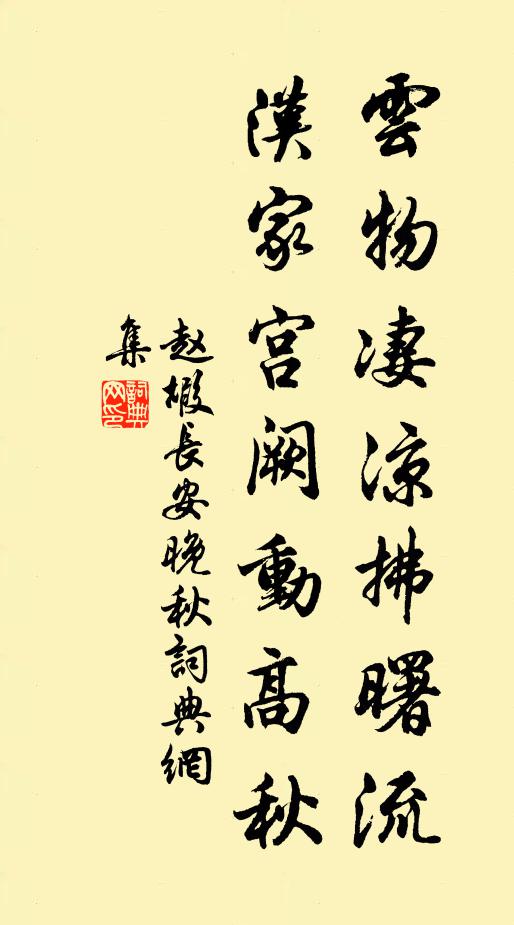 雲物淒涼拂曙流
漢家宮闕動高秋
赵嘏長安晚秋詞典網
集
詞典